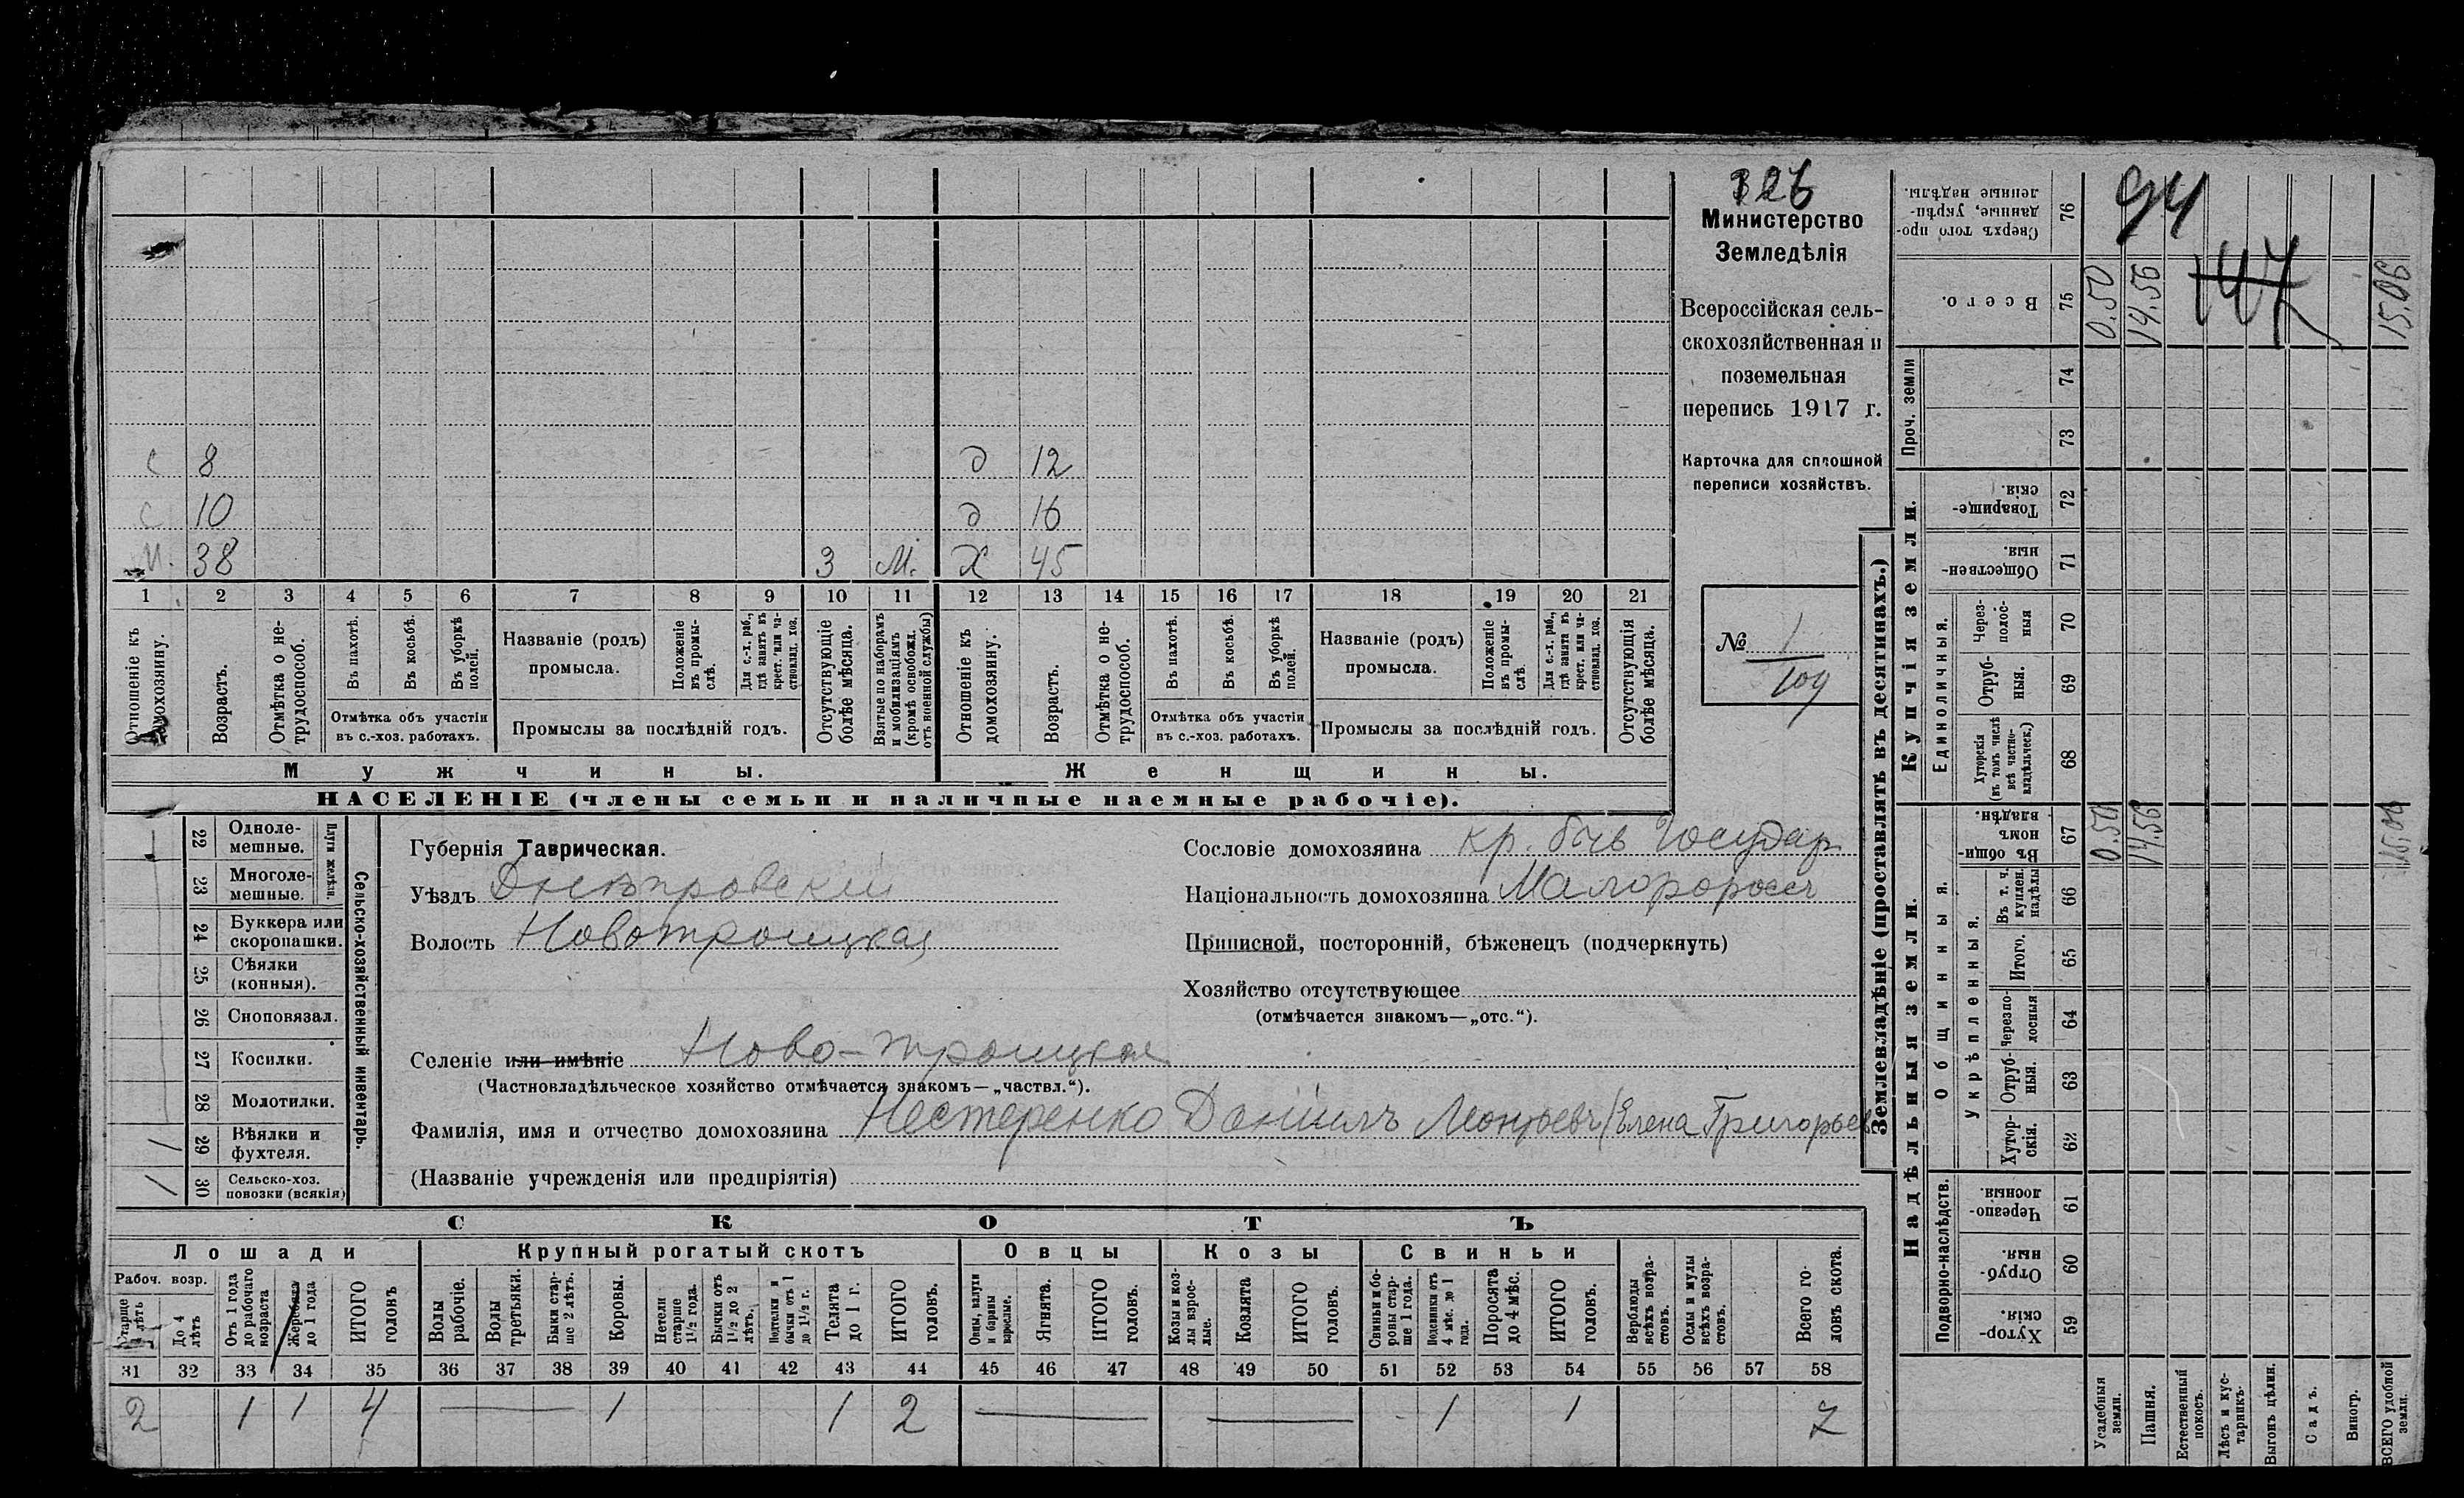 326
Министерство
Земледѣлія
Всероссійская сель-
скохозяйственная и
поземельная
перепись 1917 г.
Карточка для сплошной
переписи хозяйствъ.
№ 1
109
с 8 д 12
с 10 д 16
М. 38 3 М. Х 45
1 2 3 4 5 6 7 8 9 10 11 12 13 14 15 16 17 18 19 20 21
Отношеніе къ домохозяину.
Возрастъ.
Отмѣтка о не-трудоспособ.
Въ пахотѣ.
Въ косьбѣ.
Въ уборкѣ полей.
Отмѣтка объ участіи
въ с.-хоз. работахъ.
Названіе (родъ)
промысла.
Положеніе въ промы-слѣ.
Для с.-х. раб., гдѣ занятъ въ крест. или ча-стновлад. хоз.
Промыслы за послѣдній годъ.
Отсутствующіе болѣе мѣсяца.
Взятые по наборамъ и мобилизаціямъ (кромѣ освобожд. отъ военной службы)
Отношеніе къ домохозяину.
Возрастъ.
Отмѣтка о не-трудоспособ.
Въ пахотѣ.
Въ косьбѣ.
Въ уборкѣ полей.
Отмѣтка объ участіи
въ с.-хоз. работахъ.
Названіе (родъ)
промысла.
Положеніе въ промы-слѣ.
Для с.-х. раб., гдѣ занята въ крест. или ча-стновлад. хоз.
Промыслы за послѣдній годъ.
Отсутствующія болѣе мѣсяца.
Мужчины. Женщины.
НАСЕЛЕНІЕ (члены семьи и наличные наемные рабочіе).
22 Одноле-мешные.
23 Многоле-мешные.
Плуги желѣзн.
24 Буккера или скоропашки.
25 Сѣялки (конныя).
26 Сноповязал.
27 Косилки.
28 Молотилки.
1 29 Вѣялки и фухтеля.
1 30 Сельско-хоз. повозки (всякія)
Сельско-хозяйственный инвентарь.
Губернія Таврическая.
Уѣздъ Днѣпровскій
Волость Новотроицкая
Селеніе или имѣніе Ново-Троицкое
(Частновладѣльческое хозяйство отмѣчается знакомъ—„частвл.“).
Фамилія, имя и отчество домохозяина Нестеренко Даніилъ Леонтьевъ/Елена Григорьев
(Названіе учрежденія или предпріятія)
Сословіе домохозяина кр. бывъ Государ
Національность домохозяина Малороросъ
Приписной, посторонній, бѣженецъ (подчеркнуть)
Хозяйство отсутствующее
(отмѣчается знакомъ—„отс.“).
СКОТЪ
Лошади Крупный рогатый скотъ Овцы Козы Свиньи
Рабоч. возр.
Старше 4 лѣтъ
До 4 лѣтъ
Отъ 1 года до рабочаго возраста
Жеребята до 1 года
ИТОГО головъ
Волы рабочіе.
Волы третьяки.
Быки стар-ше 2 лѣтъ.
Коровы.
Нетели старше 1½ года.
Бычки отъ 1½ до 2 лѣтъ.
Подтелки и бычки отъ 1 до 1½ г.
Телята до 1 г.
ИТОГО головъ.
Овцы, валухи и бараны взрослые.
Ягнята.
ИТОГО головъ.
Козы и коз-лы взрос-лые.
Козлята
ИТОГО головъ.
Свиньи и бо-ровы стар-ше 1 года.
Подсвинки отъ 4 мѣс. до 1 года.
Поросята до 4 мѣс.
ИТОГО головъ.
Верблюды всѣхъ возра-стовъ.
Ослы и мулы всѣхъ возра-стовъ.
Всего го-ловъ скота.
31 32 33 34 35 36 37 38 39 40 41 42 43 44 45 46 47 48 49 50 51 52 53 54 55 56 57 58
2 1 1 4 — 1 1 2 — — 1 1 7
Землевладѣніе (проставлять въ десятинахъ.)
94
147
76 Сверхъ того про-данные, укрѣп-ленные надѣлы.
75 Всего. 0.50 14.56 15.06
Проч. земли
74
73
Купчія земли.
72 Товарище-скія.
71 Обществен-ныя.
Единоличныя.
70 Через-полос-ныя
69 Отруб-ныя.
68 Хуторскія (въ томъ числѣ всѣ частно-владѣльческ.)
Надѣльныя земли.
Общинныя.
67 Въ общи-номъ владѣн. 0.50 14.56 15.06
Укрѣпленныя.
66 Въ т. ч. куплен. надѣлы
65 Итого.
64 Черезпо-лосныя
63 Отруб-ныя.
62 Хутор-скія.
Подворно-наслѣдств.
61 Черезпо-лосныя.
60 Отруб-ныя.
59 Хутор-скія
Усадебныя земли.
Пашня.
Естественный покосъ.
Лѣсъ и кус-тарникъ.
Выгонъ цѣлин.
Садъ.
Виногр.
ВСЕГО удобной земли.